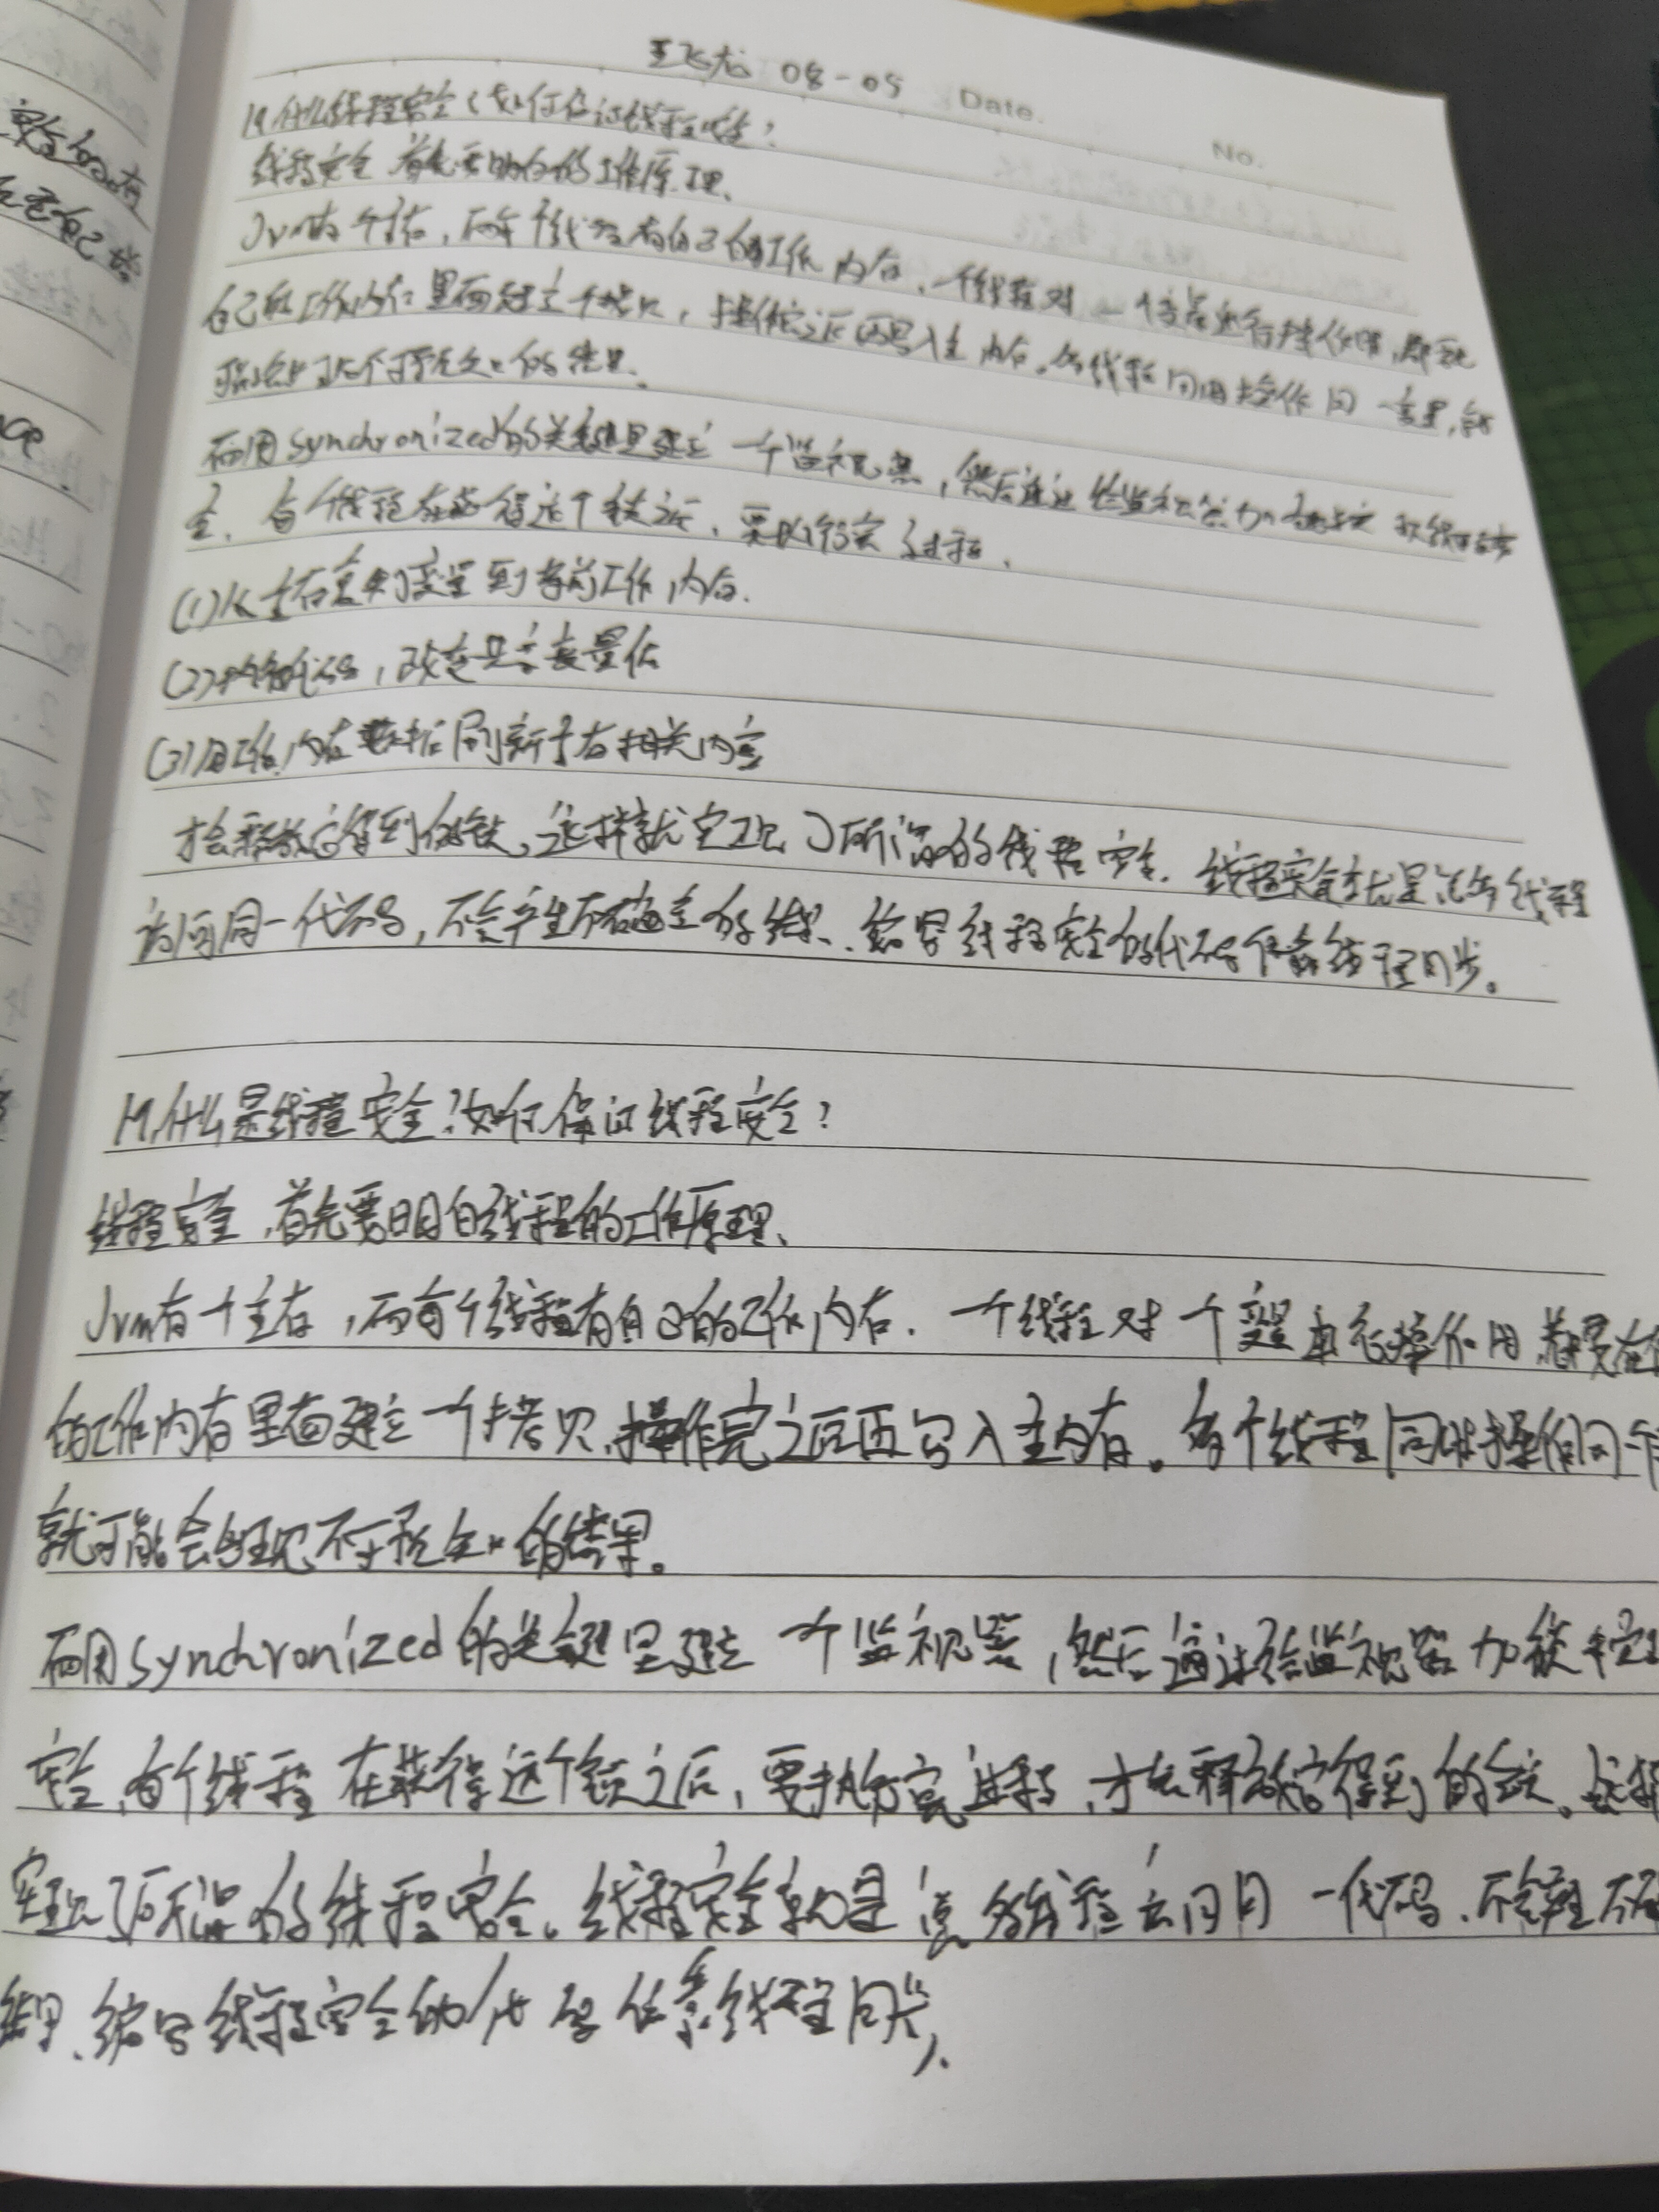 王飞龙 08-05 Date.
No.
19.什么线程安全?如何保证线程安全?
线程安全 首先要明白的工作原理、
Jvm有个主存,而每个线程有自己的工作内存、一个线程对一个变量进行操作时,都要
自己的工作内存里面建立一个拷贝,操作完之后再写入主内存。多线程同时操作同一变量,
可能出现不可预知的结果、
而用synchronized的关键是建立一个监视器,然后通过给监视器加
全、每个线程在获得这个锁之后、要执行完了过程、
(1)从主存复制变量到当前工作内存、
(2)执行代码,改变共享变量值
(3)用工作内存数据刷新主存相关内容
才会释放它得到的锁、这样就实现了所谓的线程安全、线程安全就是说多线程
访问同一代码,不会产生不确定的结果、编写线程安全的代码依靠线程同步。
19.什么是线程安全?如何保证线程安全?
线程安全,首先要明白线程的工作原理、
Jvm有一个主存,而每个线程有自己的工作内存、一个线程对一个变量进行操作时,都要在
的工作内存里面建立一个拷贝,操作完之后再写入主内存。多个线程同时操作同一个
就可能会出现不可预知的结果。
而用synchronized的关键是建立一个监视器,然后通过给监视器加锁
安全,每个线程在获得这个锁之后,要执行完进程,才会释放它得到的锁。这样
实现了所谓的线程安全。线程安全就是说多线程访问同一代码、不会产生不
结果、编写线程安全的代码依靠线程同步、